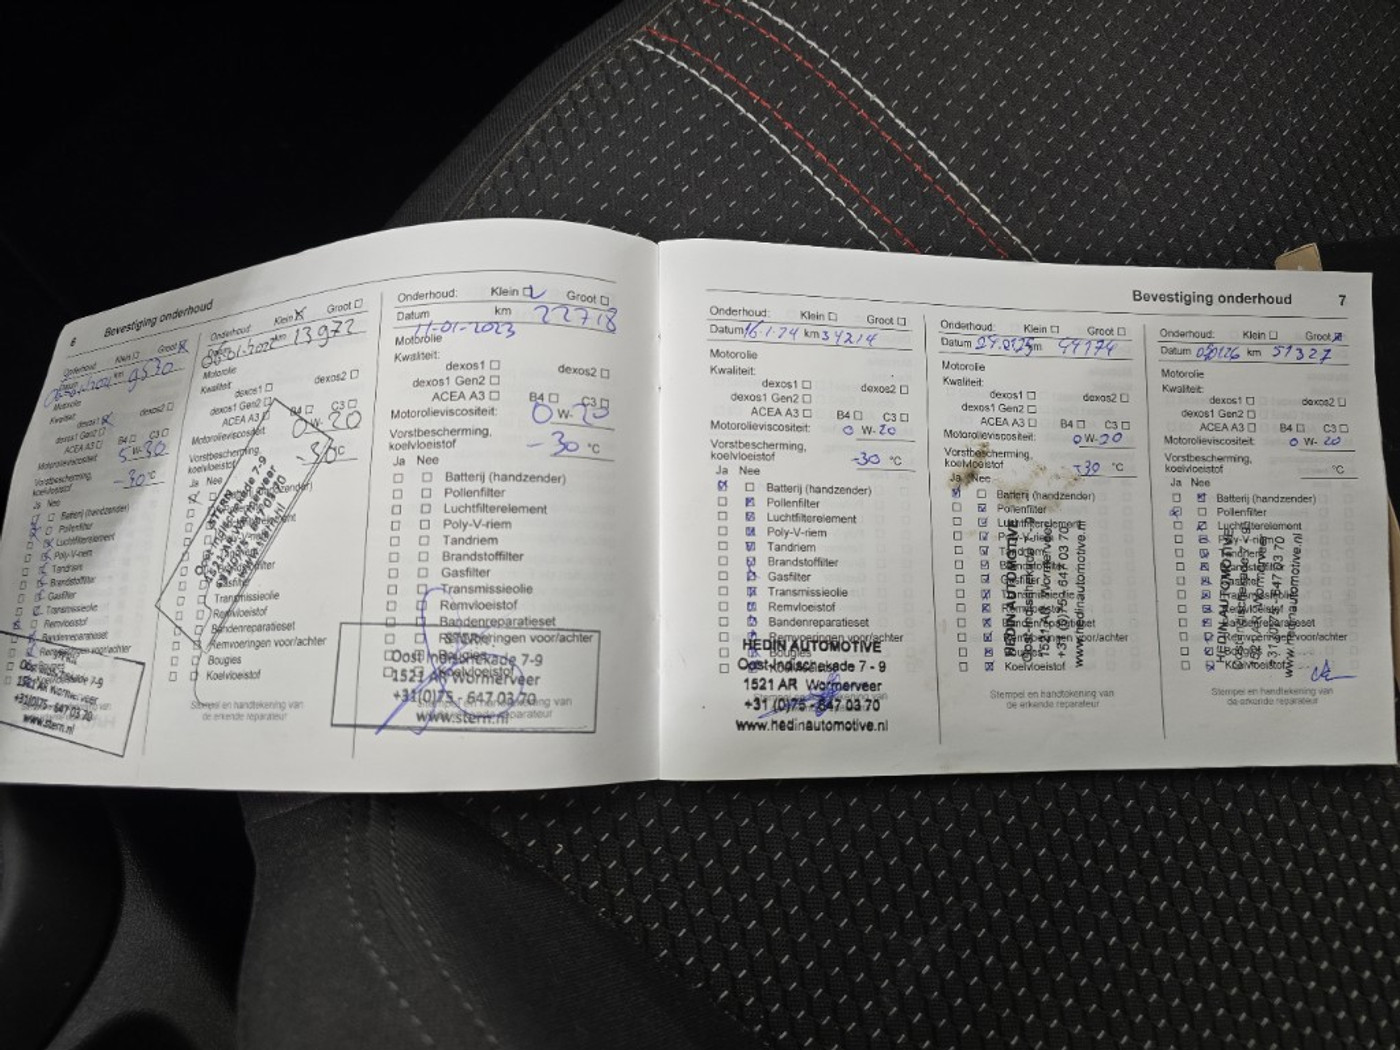 6 Bevestiging onderhoud
Onderhoud: Klein Groot
Datum km 9530
Motorolie
Kwaliteit:
dexos1 dexos2
dexos1 Gen2
ACEA A3 B4 C3
Motorolieviscositeit: 5 W- 30
Vorstbescherming,
koelvloeistof -30 °C
Ja Nee
Batterij (handzender)
Pollenfilter
Luchtfilterelement
Poly-V-riem
Tandriem
Brandstoffilter
Gasfilter
Transmissieolie
Remvloeistof
Bandenreparatieset
Remvoeringen voor/achter
STERN
Oost Indischekade 7-9
1521 AR Wormerveer
+31(0)75 - 647 03 70
www.stern.nl
Onderhoud: Klein Groot
Datum km 13972
Motorolie
Kwaliteit:
dexos1 dexos2
dexos1 Gen2
ACEA A3 B4 C3
Motorolieviscositeit: 0 W- 20
Vorstbescherming,
koelvloeistof -30 °C
Ja Nee
STERN
Transmissieolie
Remvloeistof
Bandenreparatieset
Remvoeringen voor/achter
Bougies
Koelvloeistof
Stempel en handtekening van
de erkende reparateur
Onderhoud: Klein Groot
Datum 11-01-2023 km 22718
Motorolie
Kwaliteit:
dexos1 dexos2
dexos1 Gen2
ACEA A3 B4 C3
Motorolieviscositeit: 0 W- 20
Vorstbescherming,
koelvloeistof -30 °C
Ja Nee
Batterij (handzender)
Pollenfilter
Luchtfilterelement
Poly-V-riem
Tandriem
Brandstoffilter
Gasfilter
Transmissieolie
Remvloeistof
Bandenreparatieset
Remvoeringen voor/achter
Bougies
Koelvloeistof
Oost Indischekade 7-9
1521 AR Wormerveer
+31(0)75 - 647 03 70
www.stern.nl
Bevestiging onderhoud 7
Onderhoud: Klein Groot
Datum 16.1.24 km 34214
Motorolie
Kwaliteit:
dexos1 dexos2
dexos1 Gen2
ACEA A3 B4 C3
Motorolieviscositeit: 0 W- 20
Vorstbescherming,
koelvloeistof -30 °C
Ja Nee
Batterij (handzender)
Pollenfilter
Luchtfilterelement
Poly-V-riem
Tandriem
Brandstoffilter
Gasfilter
Transmissieolie
Remvloeistof
Bandenreparatieset
Remvoeringen voor/achter
Bougies
HEDIN AUTOMOTIVE
Oost-Indischekade 7 - 9
1521 AR Wormerveer
+31 (0)75 - 647 03 70
www.hedinautomotive.nl
Onderhoud: Klein Groot
Datum km 44174
Motorolie
Kwaliteit:
dexos1 dexos2
dexos1 Gen2
ACEA A3 B4 C3
Motorolieviscositeit: 0 W- 20
Vorstbescherming,
koelvloeistof -30 °C
Ja Nee
Batterij (handzender)
Pollenfilter
Luchtfilterelement
Koelvloeistof
HEDIN AUTOMOTIVE
Oost-Indischekade 7 - 9
1521 AR Wormerveer
+31 (0)75 - 647 03 70
www.hedinautomotive.nl
Stempel en handtekening van
de erkende reparateur
Onderhoud: Klein Groot
Datum km 51327
Motorolie
Kwaliteit:
dexos1 dexos2
dexos1 Gen2
ACEA A3 B4 C3
Motorolieviscositeit: 0 W- 20
Vorstbescherming,
koelvloeistof °C
Ja Nee
Batterij (handzender)
Pollenfilter
Luchtfilterelement
HEDIN AUTOMOTIVE
www.hedinautomotive.nl
Stempel en handtekening van
de erkende reparateur